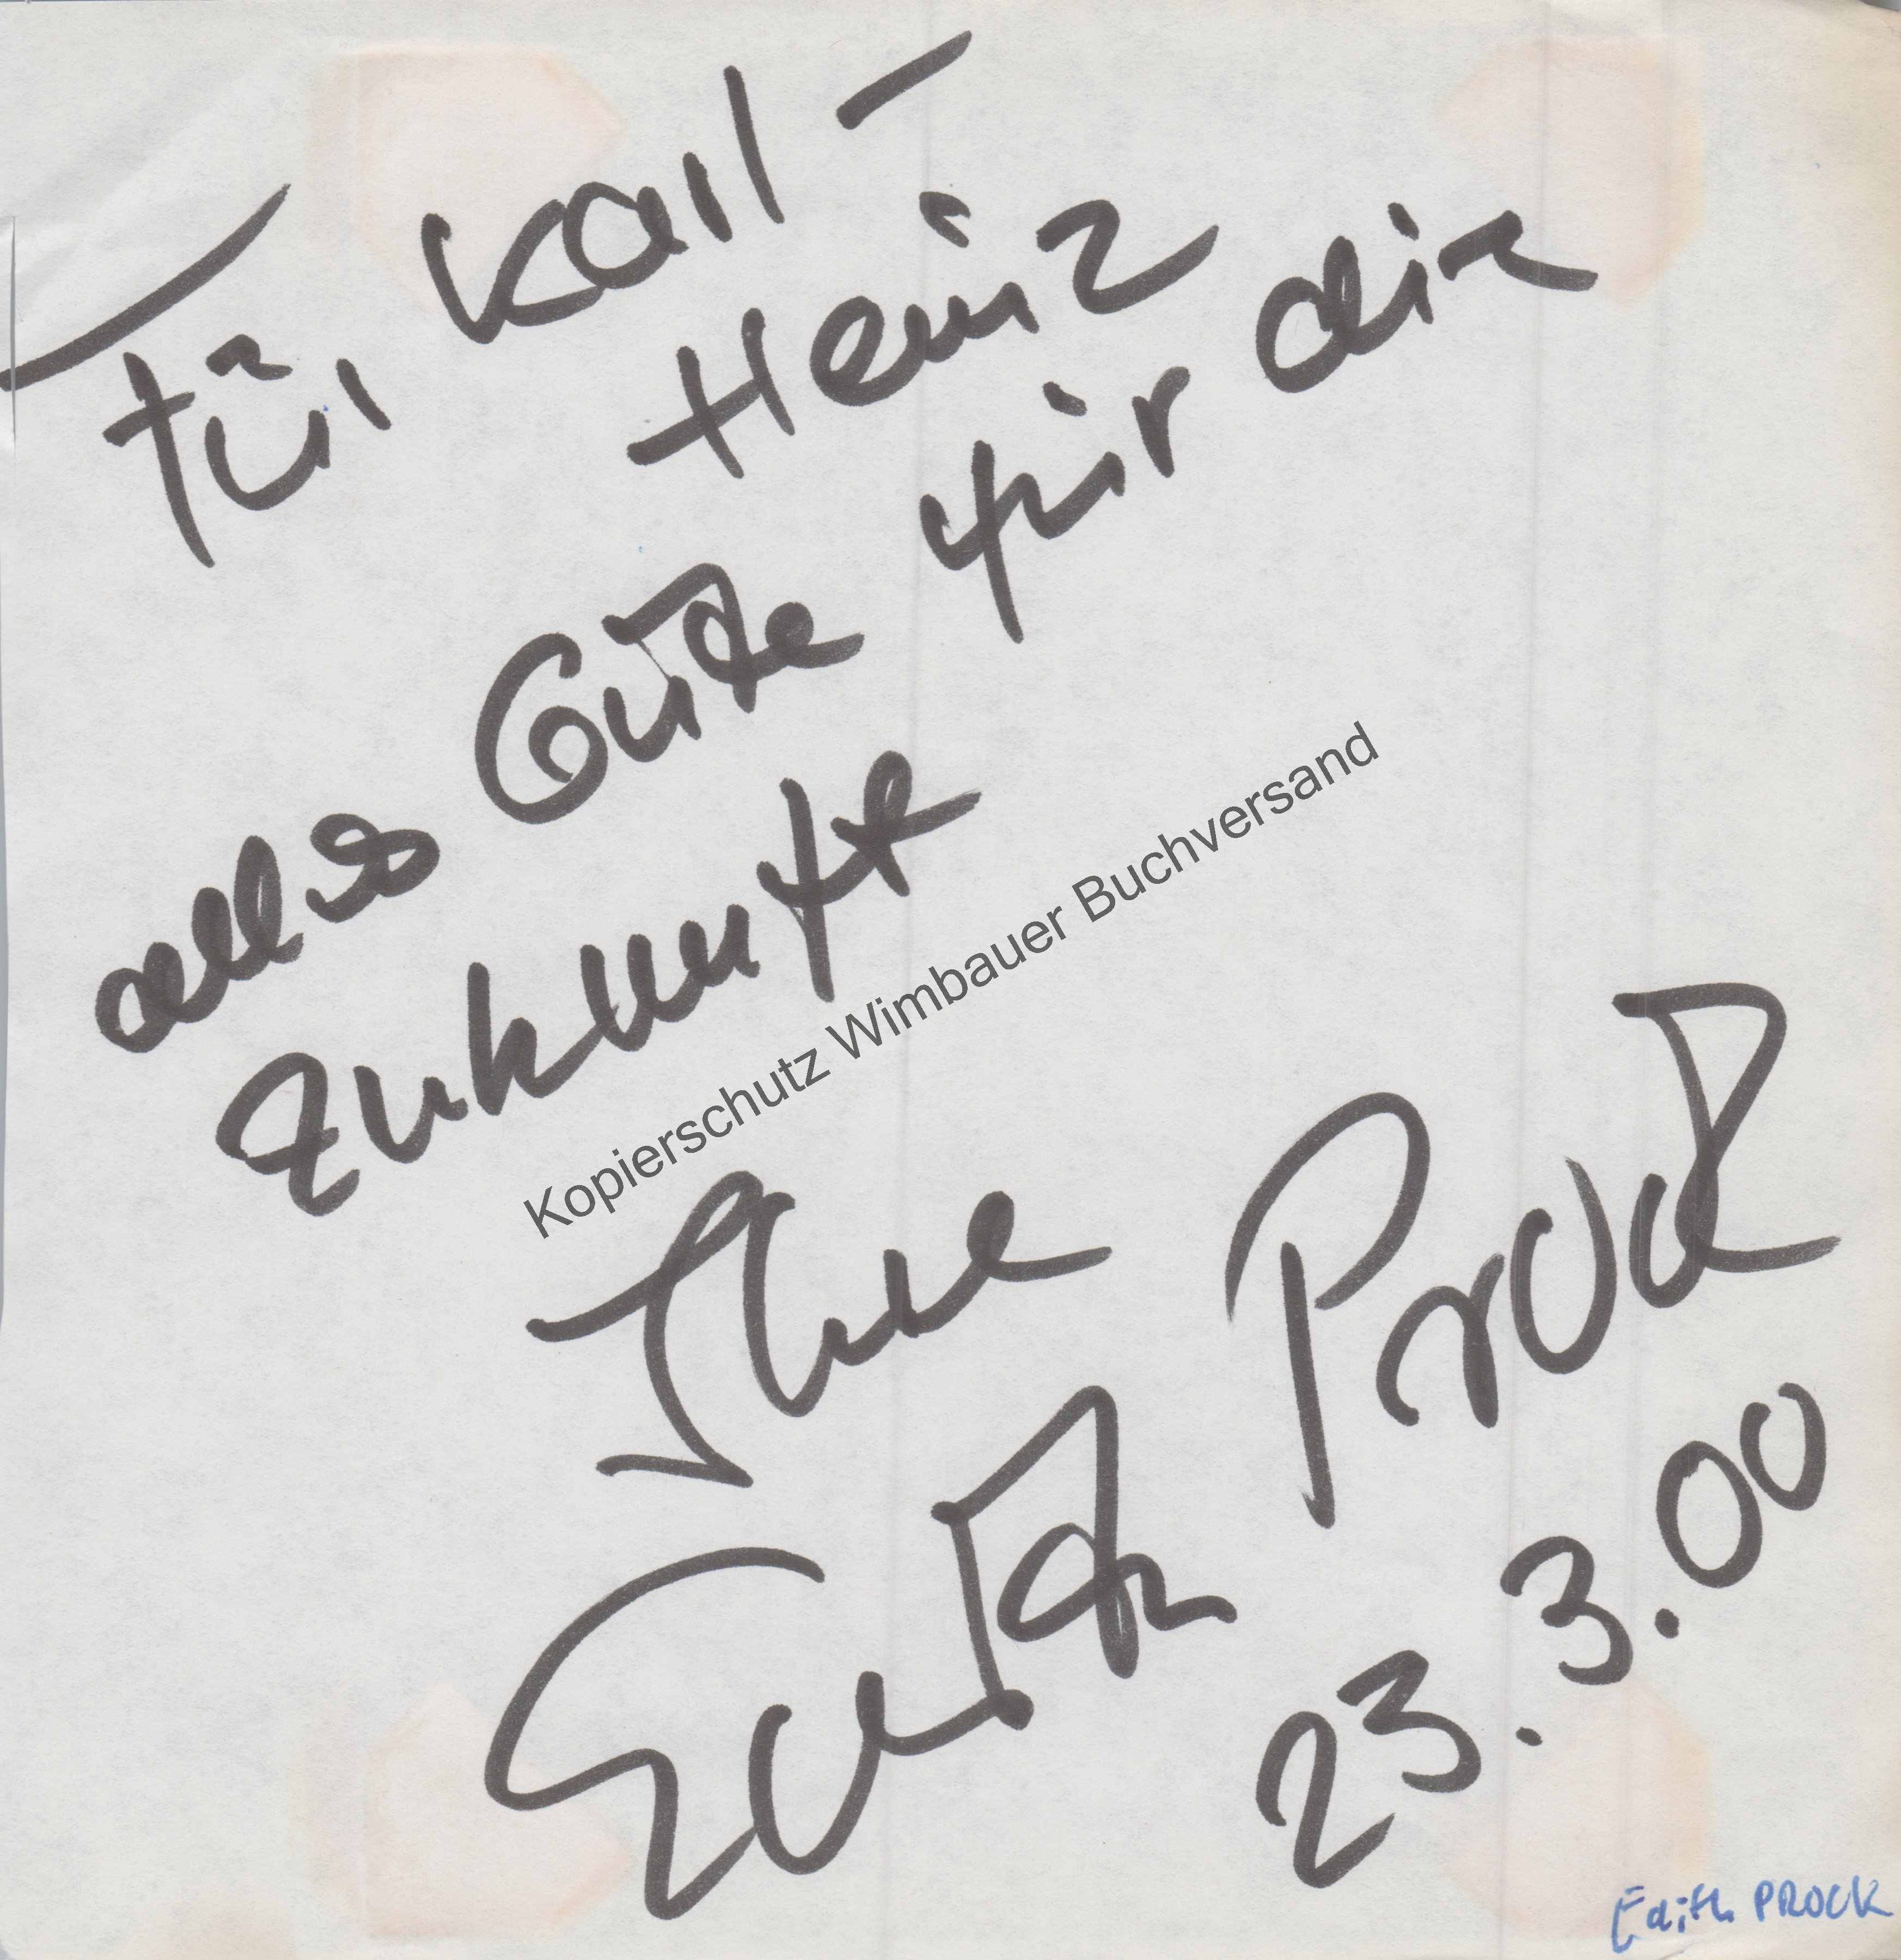 Für Karl-
Heinz
alles Gute für die
Zukunft
Kopierschutz Wimbauer Buchversand
Ihre
Edith Prock
23.3.00
Edith PROCK